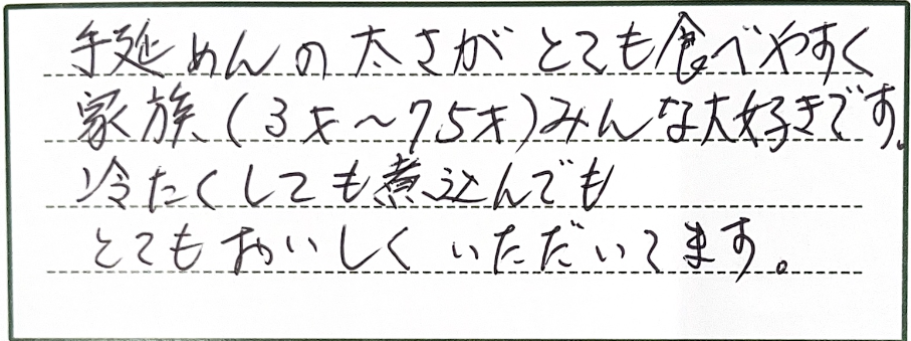 手延めんの太さがとても食べやすく
家族(3才～75才)みんな大好きです。
冷たくしても煮込んでも
とてもおいしくいただいてます。